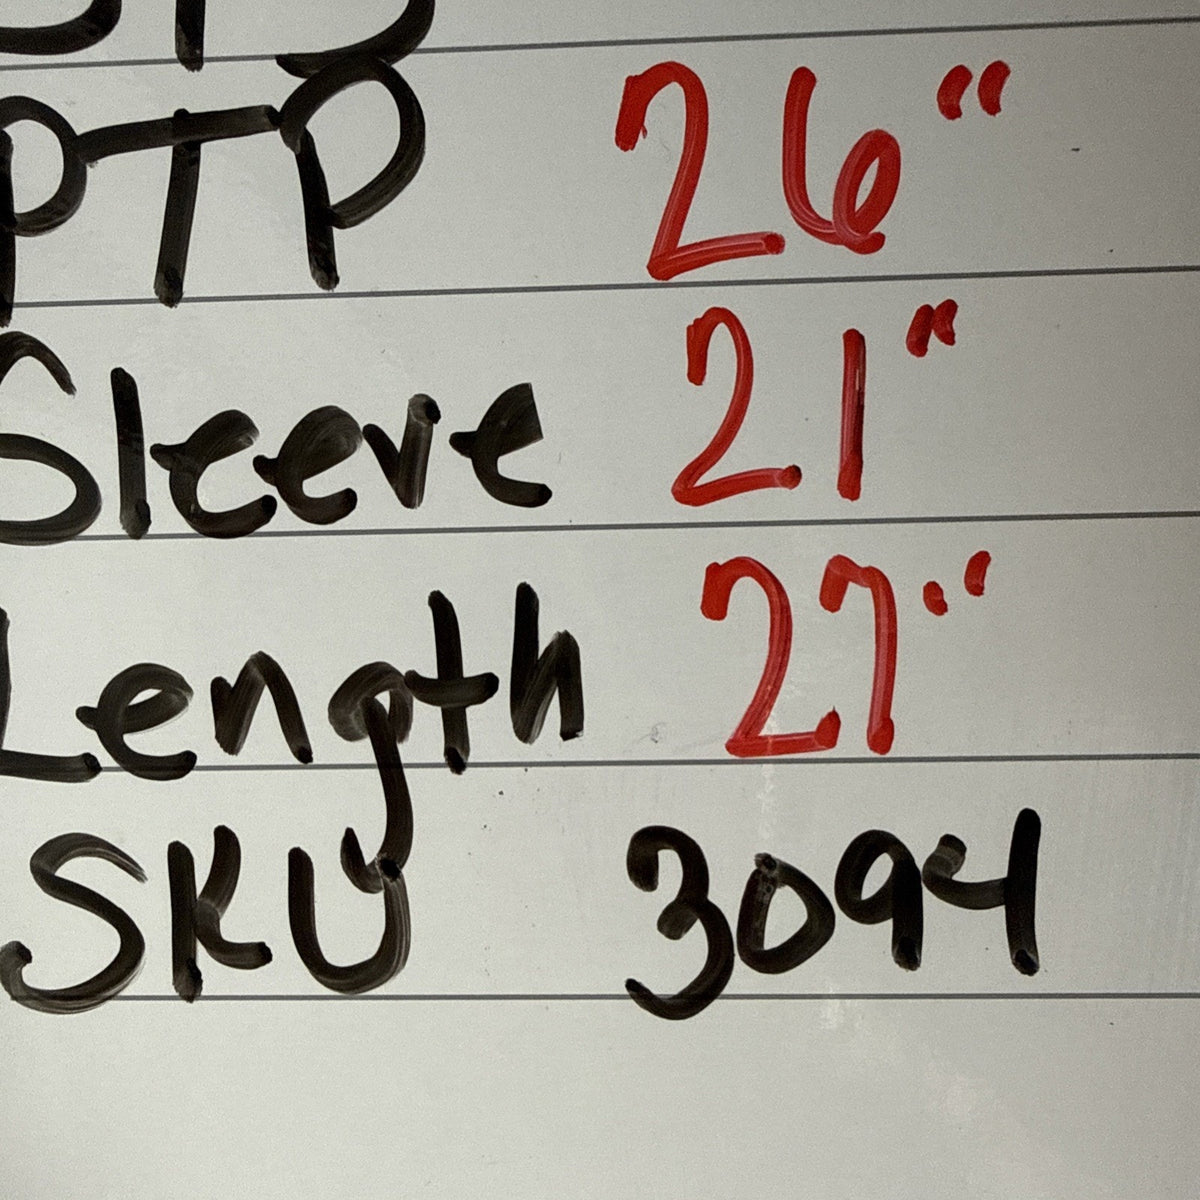 PTP 26"
Sleeve 21"
Length 27"
SKU 3094